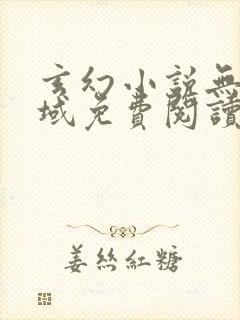 玄幻小說無
域免費閱讀
姜絲紅糖